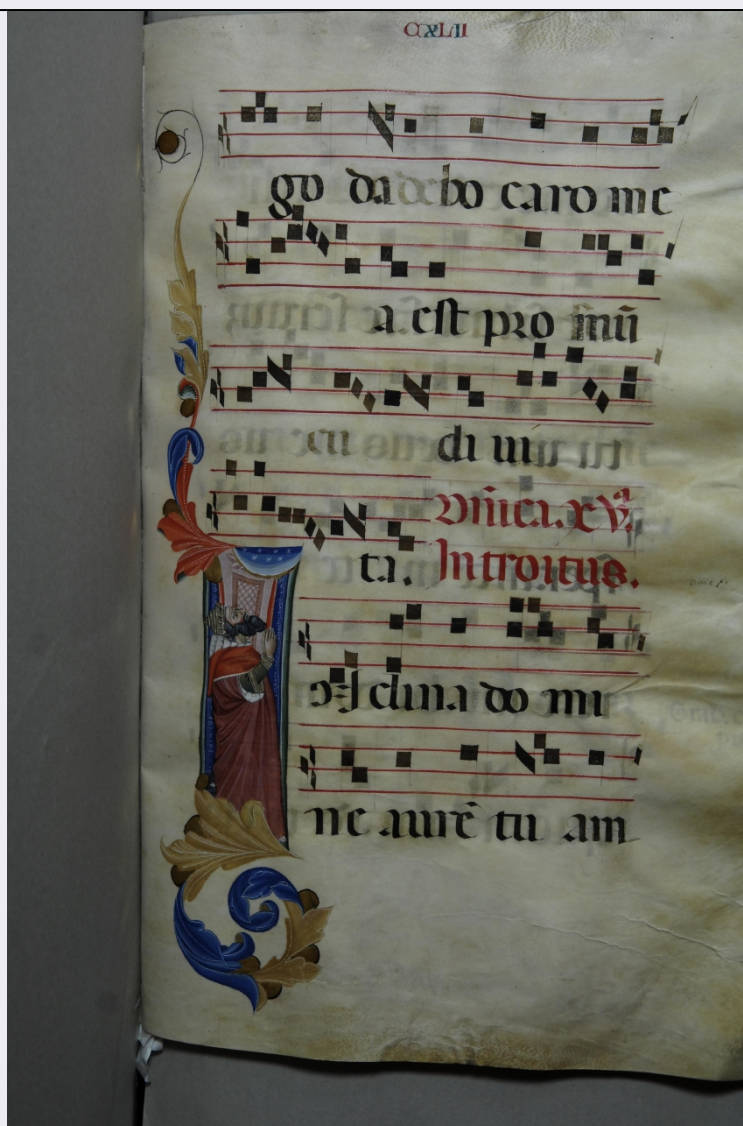 CCXLII
go da bo caro me
a est pro mū
di ui
ta. Dñica.xV.ª
Introitus.
clina do mi
ne aurē tu am